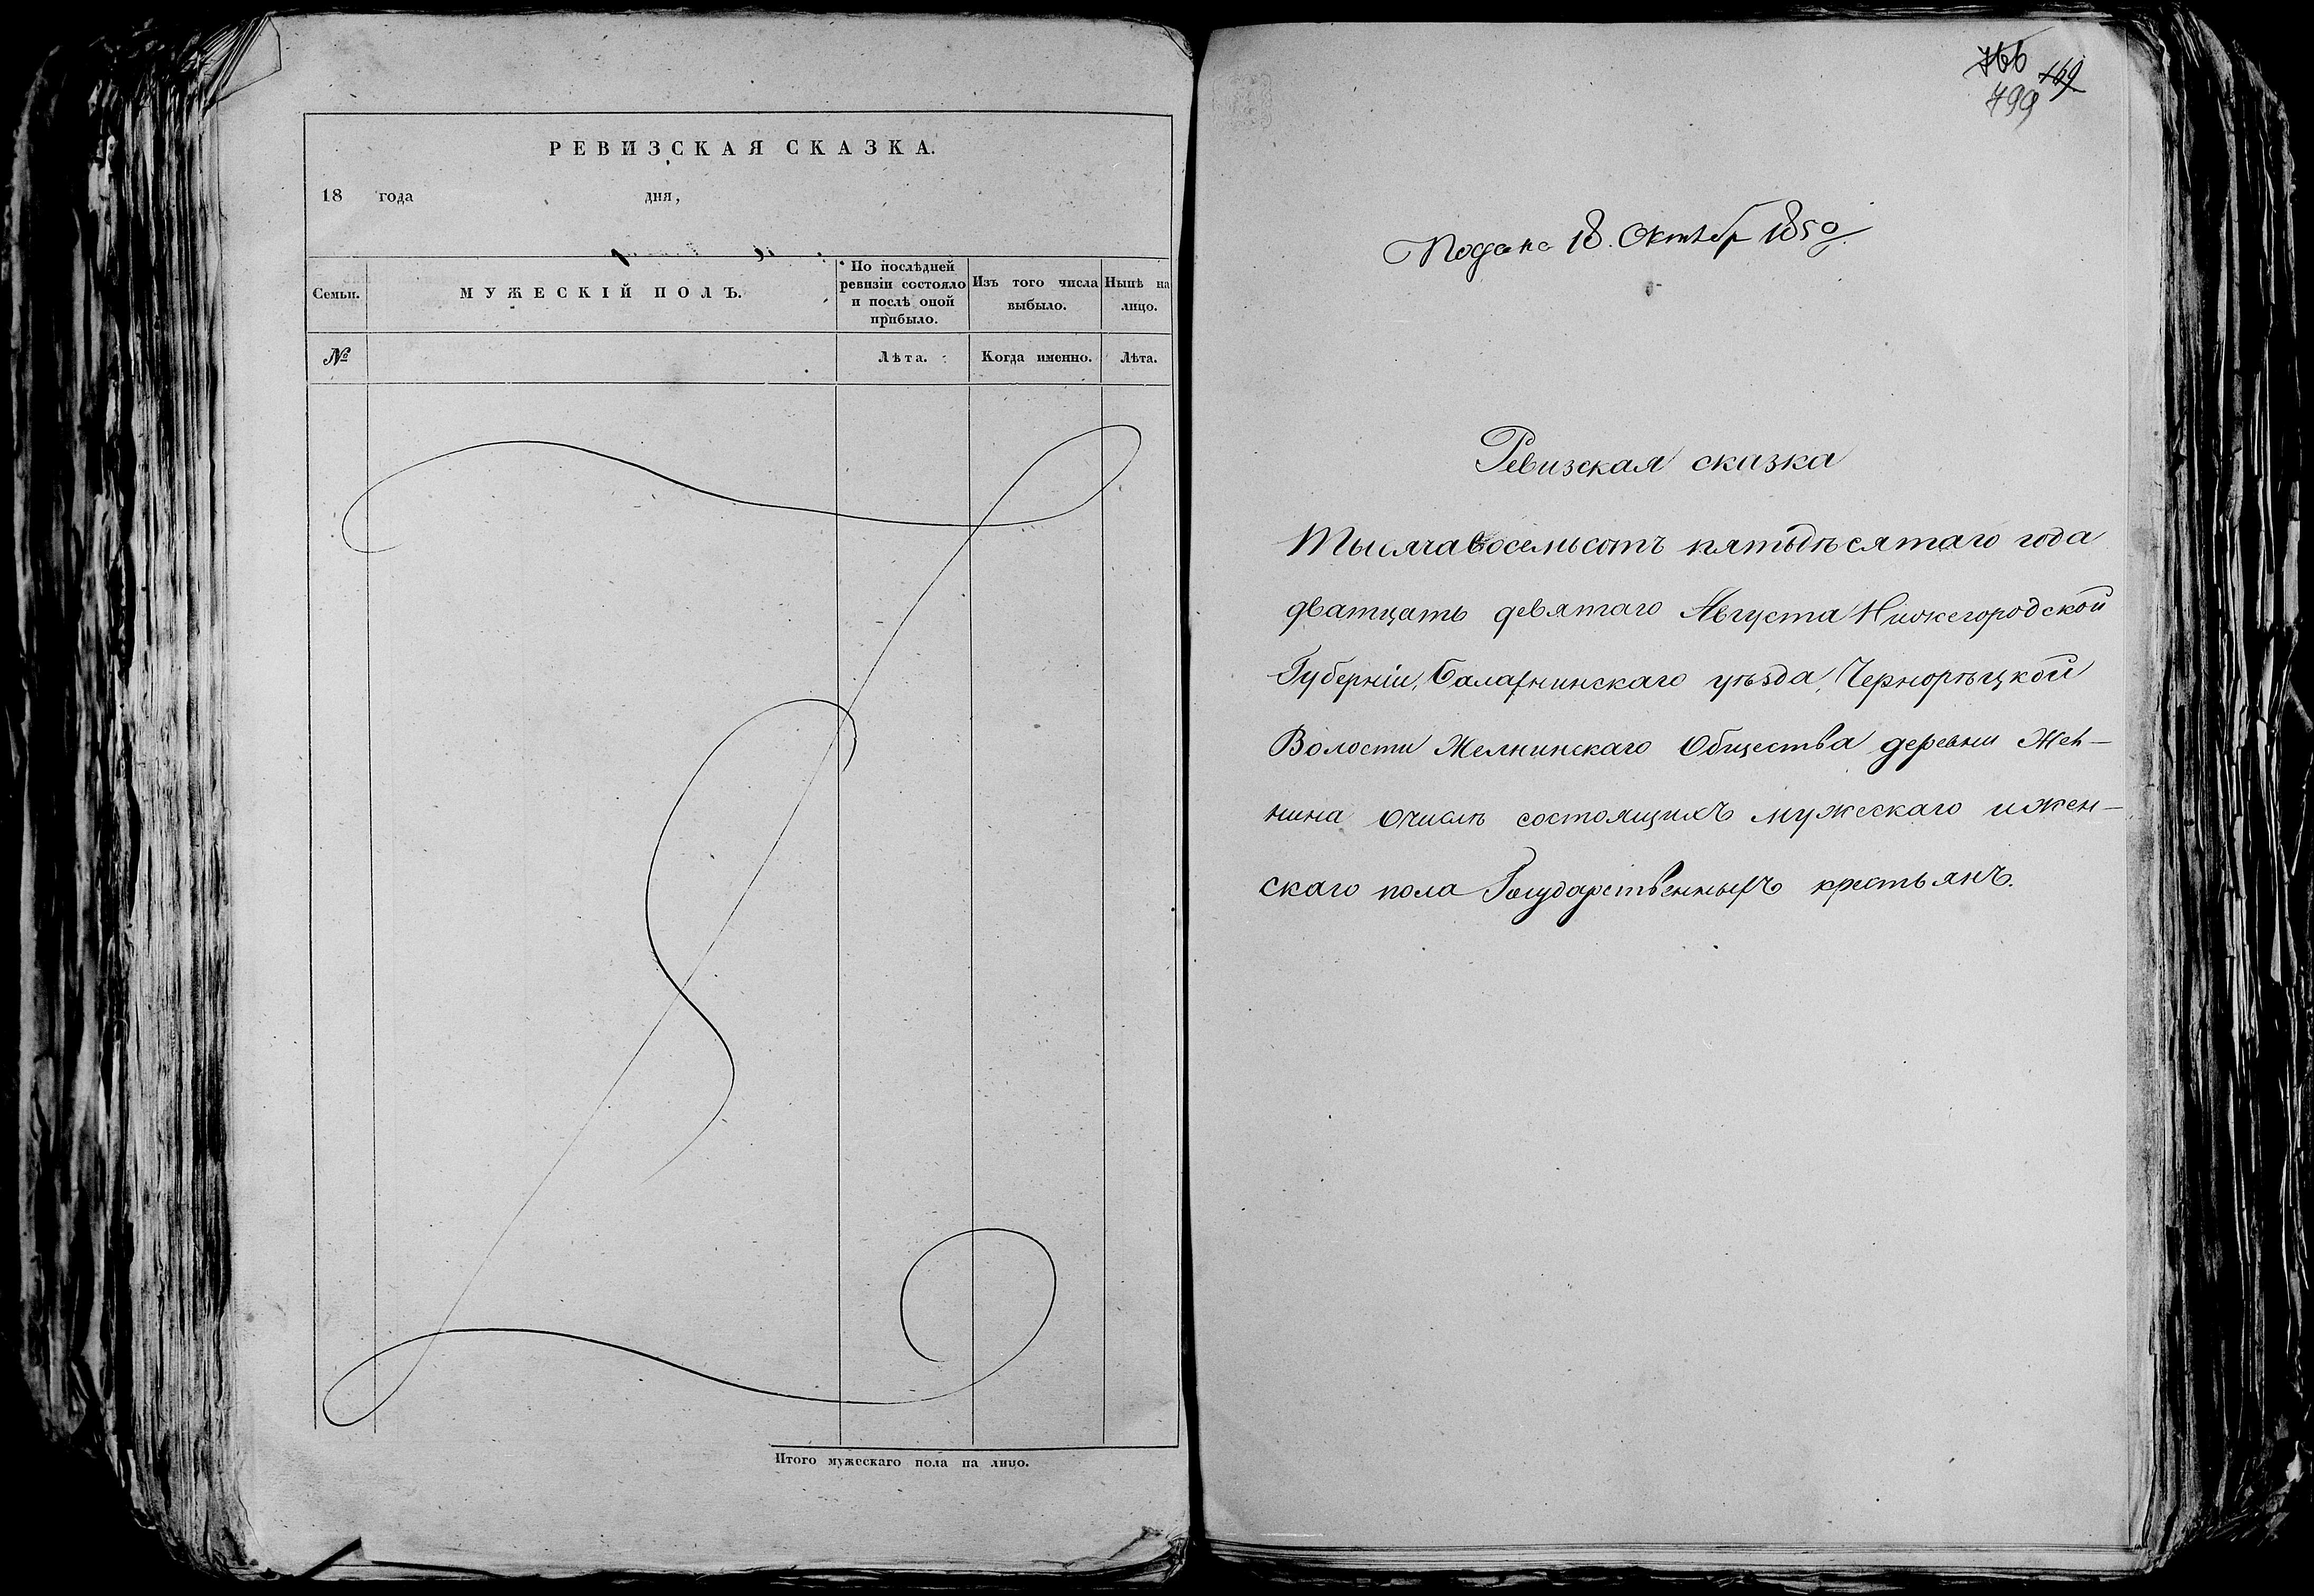 РЕВИЗСКАЯ СКАЗКА.
18 года дня,
Семьи.
МУЖЕСКІЙ ПОЛЪ.
По послѣдней
ревизіи состояло
и послѣ оной
прибыло.
Изъ того числа
выбыло.
Нынѣ на
лицо.
№
Лѣта.
Когда именно.
Лѣта.
Итого мужескаго пола на лицо.
766
169
799
Подана 18. Октябр 1850
Ревизская сказка
Тысяча восемьсотъ пятьдѣсятаго года
дватцать девятаго Августа Нижегородской
Губерніи, Балахнинскаго уѣзда, Чернорѣцкой
Волости Желнинскаго Общества деревни Жел-
нина о числѣ состоящихъ мужескаго и жен-
скаго пола Государственныхъ крестьянъ.